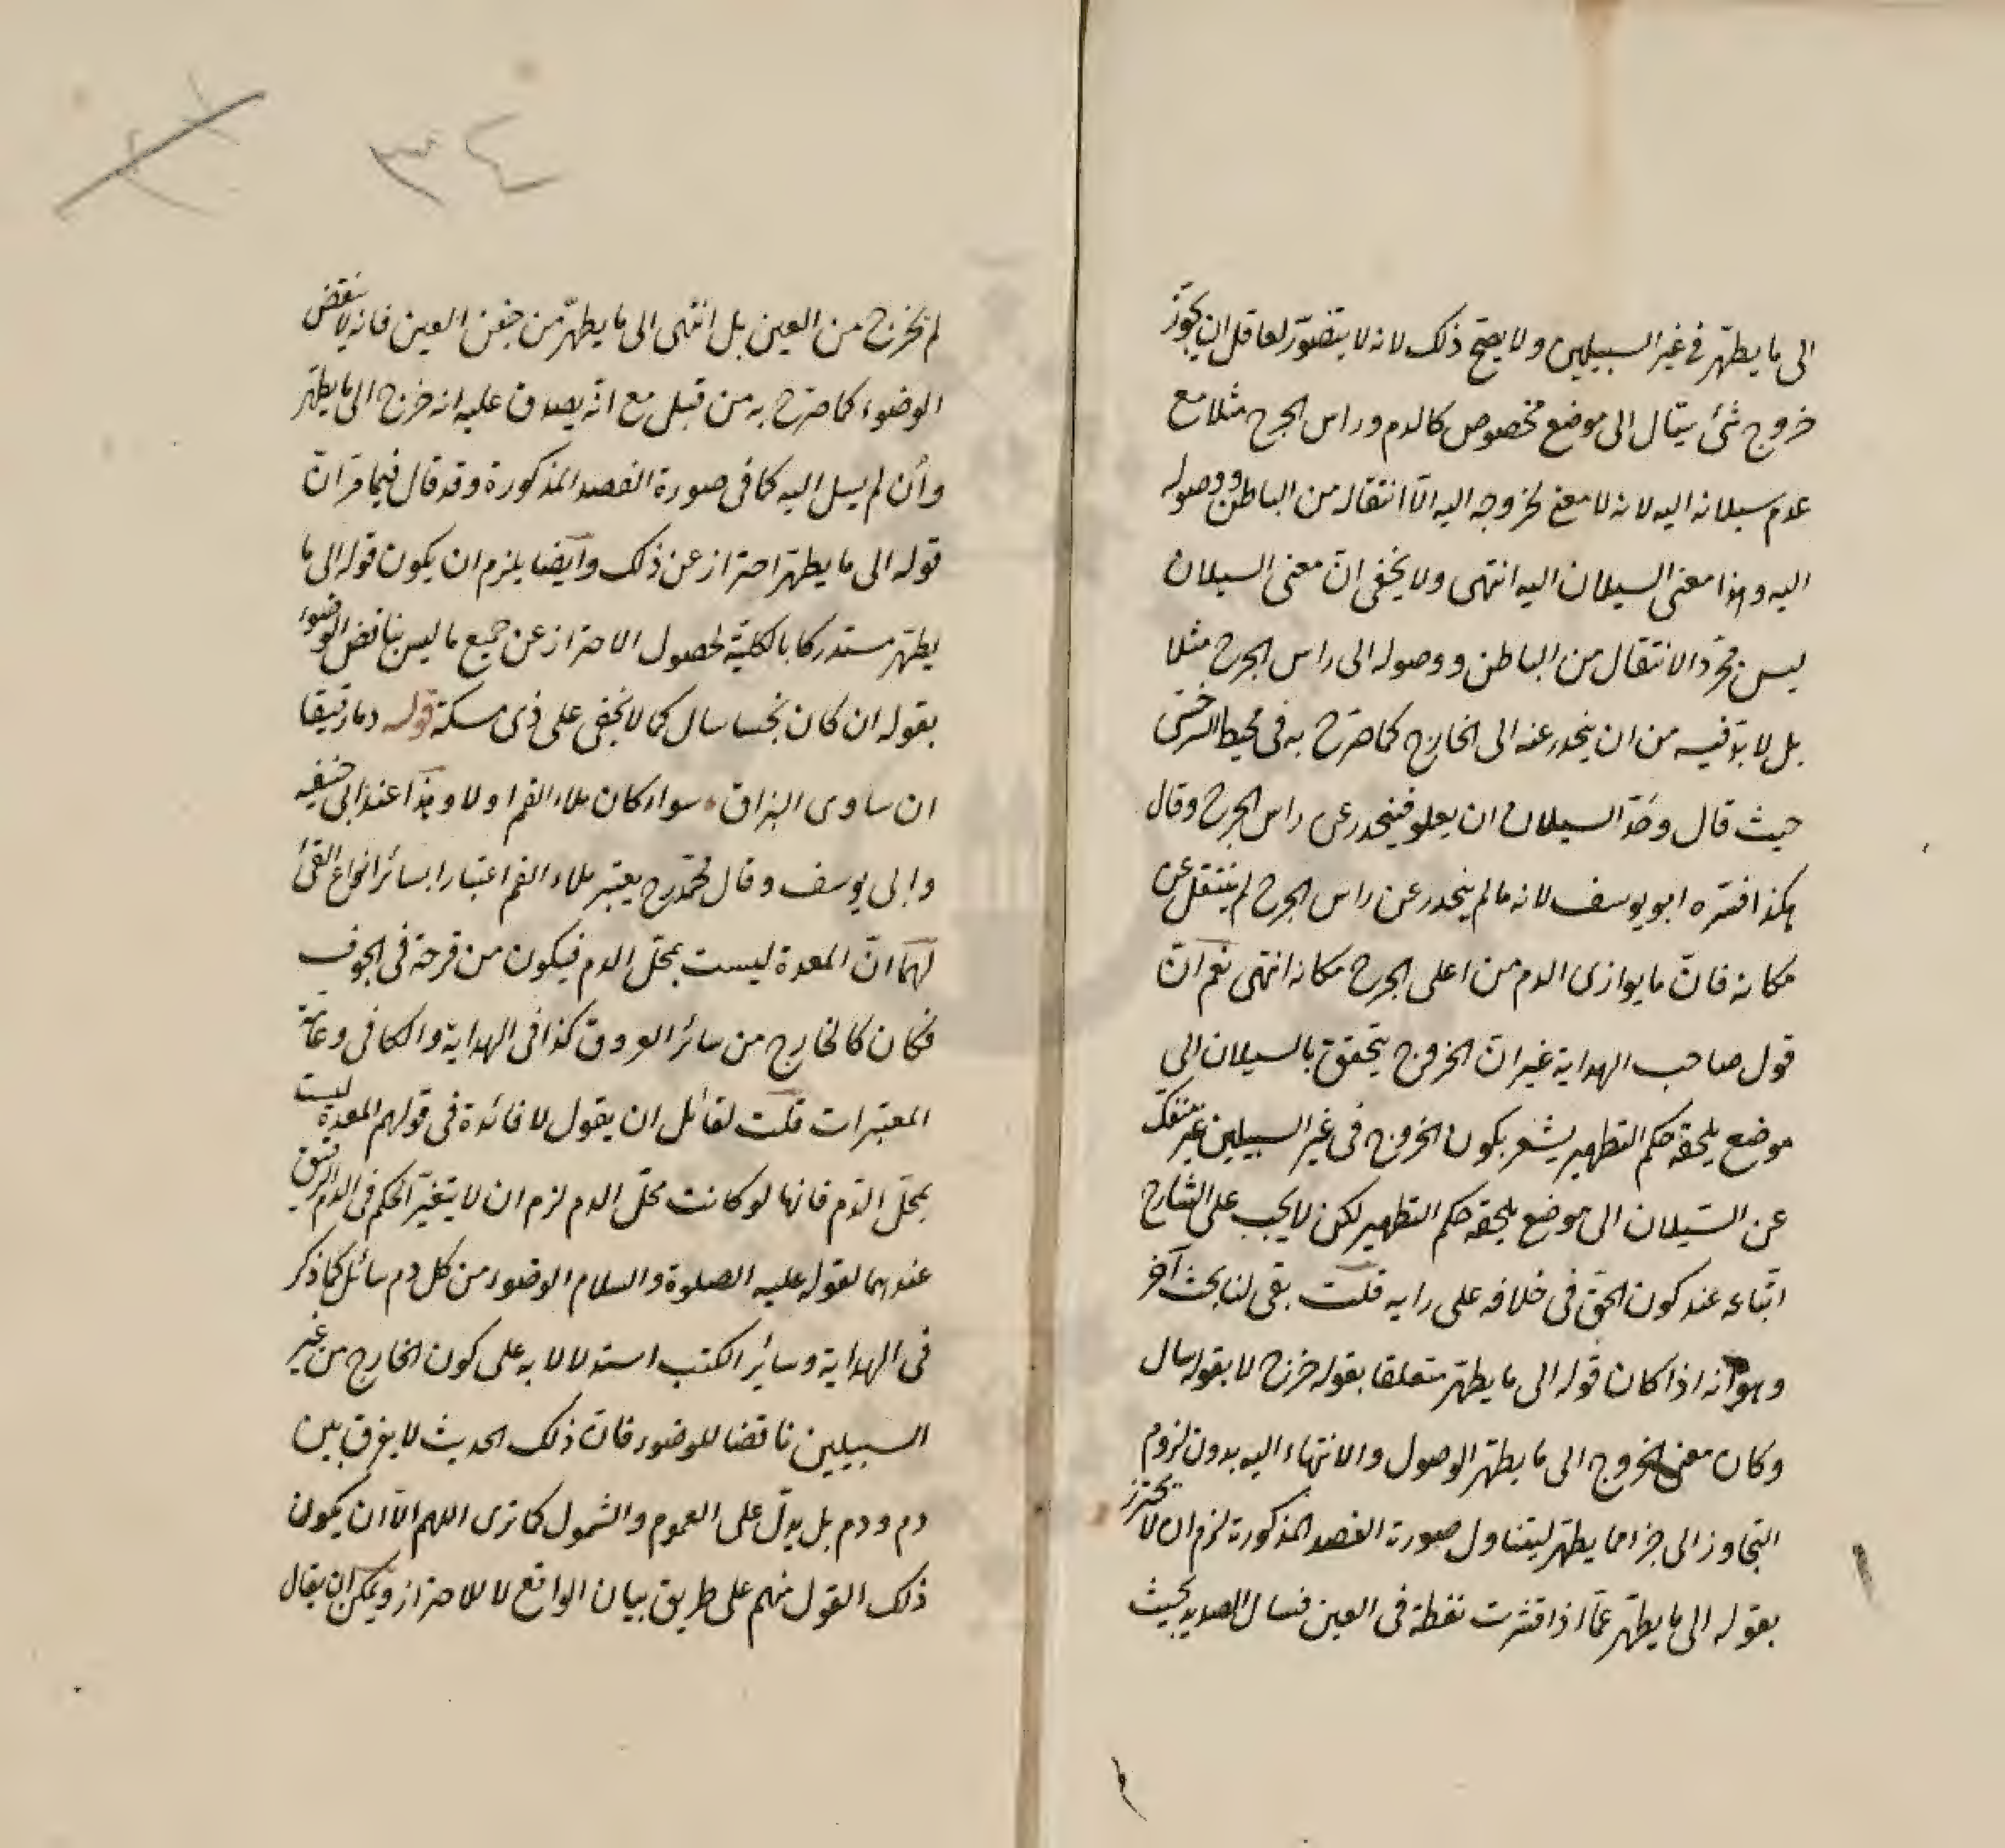 الى ما يطهر فى غير السبيلين ولا يصح ذلك لانه لا يتصور لعاقل ان يجوّز
خروج شئ سيّال الى موضع مخصوص كالدم وراس الجرح مثلا مع
عدم سيلانه اليه لانه لا معنى لخروجه اليه الّا انتقاله من الباطن ووصوله
اليه وهذا معنى السيلان اليه انتهى ولا يخفى انّ معنى السيلان
ليس مجرّد الانتقال من الباطن ووصوله الى راس الجرح مثلا
بل لا بدّ فيه من ان ينحدر عنه الى الخارج كما صرّح به فى محيط السرخسى
حيث قال وحدّ السيلان ان يعلو فينحدر عن راس الجرح وقال
هكذا فسّره ابو يوسف لانه ما لم ينحدر عن راس الجرح لم ينتقل عن
مكانه فانّ ما يوازى الدم من اعلى الجرح مكانه انتهى نعم انّ
قول صاحب الهداية غير انّ الخروج يتحقق بالسيلان الى
موضع يلحقه حكم التطهير يشعر بكون الخروج فى غير السبيلين غير منفكّ
عن السّيلان الى موضع يلحقه حكم التطهير لكن لا يجب على الشارح
اتّباعه عند كون الحقّ فى خلافه على رايه قلت بقى لنا بحث آخر
وهو انه اذا كان قوله الى ما يطهر متعلقا بقوله خرج لا بقوله سال
وكان معنى الخروج الى ما يطهر الوصول والانتهاء اليه بدون لزوم
التجاوز الى جزء مما يطهر ليتناول صورة الفصد المذكورة لزم ان لا يحترز
بقوله الى ما يطهر عمّا اذا قشرت نفطة فى العين فسال الصديد بحيث
٣٤
لم يخرج من العين بل انتهى الى ما يطهّر من جفن العين فانه لا ينقض
الوضوء كما صرّح به من قبل مع انّه يصدق عليه انه خرج الى ما يطهر
وان لم يسل اليه كما فى صورة الفصد المذكورة وقد قال فيما مرّ انّ
قوله الى ما يطهر احتراز عن ذلك وايضا يلزم ان يكون قوله الى ما
يطهر مستدركا بالكليّة لحصول الاحتراز عن جميع ما ليس بناقض الوضوء
بقوله ان كان نجسا سال كما لا يخفى على ذى مسكة قوله دما رقيقا
ان ساوى البزاق سواء كان ملاء الفم او لا وهذا عند ابى حنيفه
وابى يوسف وقال محمّد رح يعتبر ملاء الفم اعتبارا بسائر انواع القئ
لهما انّ المعدة ليست بمحلّ الدم فيكون من قرحة فى الجوف
فكان كالخارج من سائر العروق كذا فى الهداية والكافى وعامّة
المعتبرات قلت لقائل ان يقول لا فائدة فى قولهم المعدة ليست
بمحلّ الدّم فانها لو كانت محلّ الدم لزم ان لا يتغيّر الحكم فى الدم الرقيق
عندهما لقوله عليه الصلوة والسلام الوضوء من كل دم سائل كما ذكر
فى الهداية وسائر الكتب استدلالا به على كون الخارج من غير
السبيلين ناقضا للوضوء فانّ ذلك الحديث لا يفرق بين
دم ودم بل يدلّ على العموم والشمول كما ترى اللهم الّا ان يكون
ذلك القول منهم على طريق بيان الواقع لا للاحتراز ويمكن ان يقال